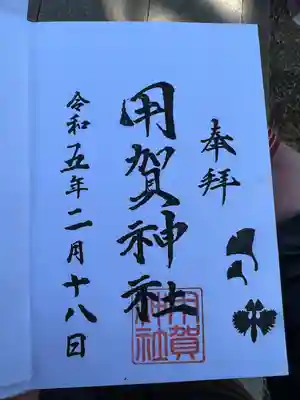 奉拝
用賀神社
令和五年二月十八日
用賀
神社